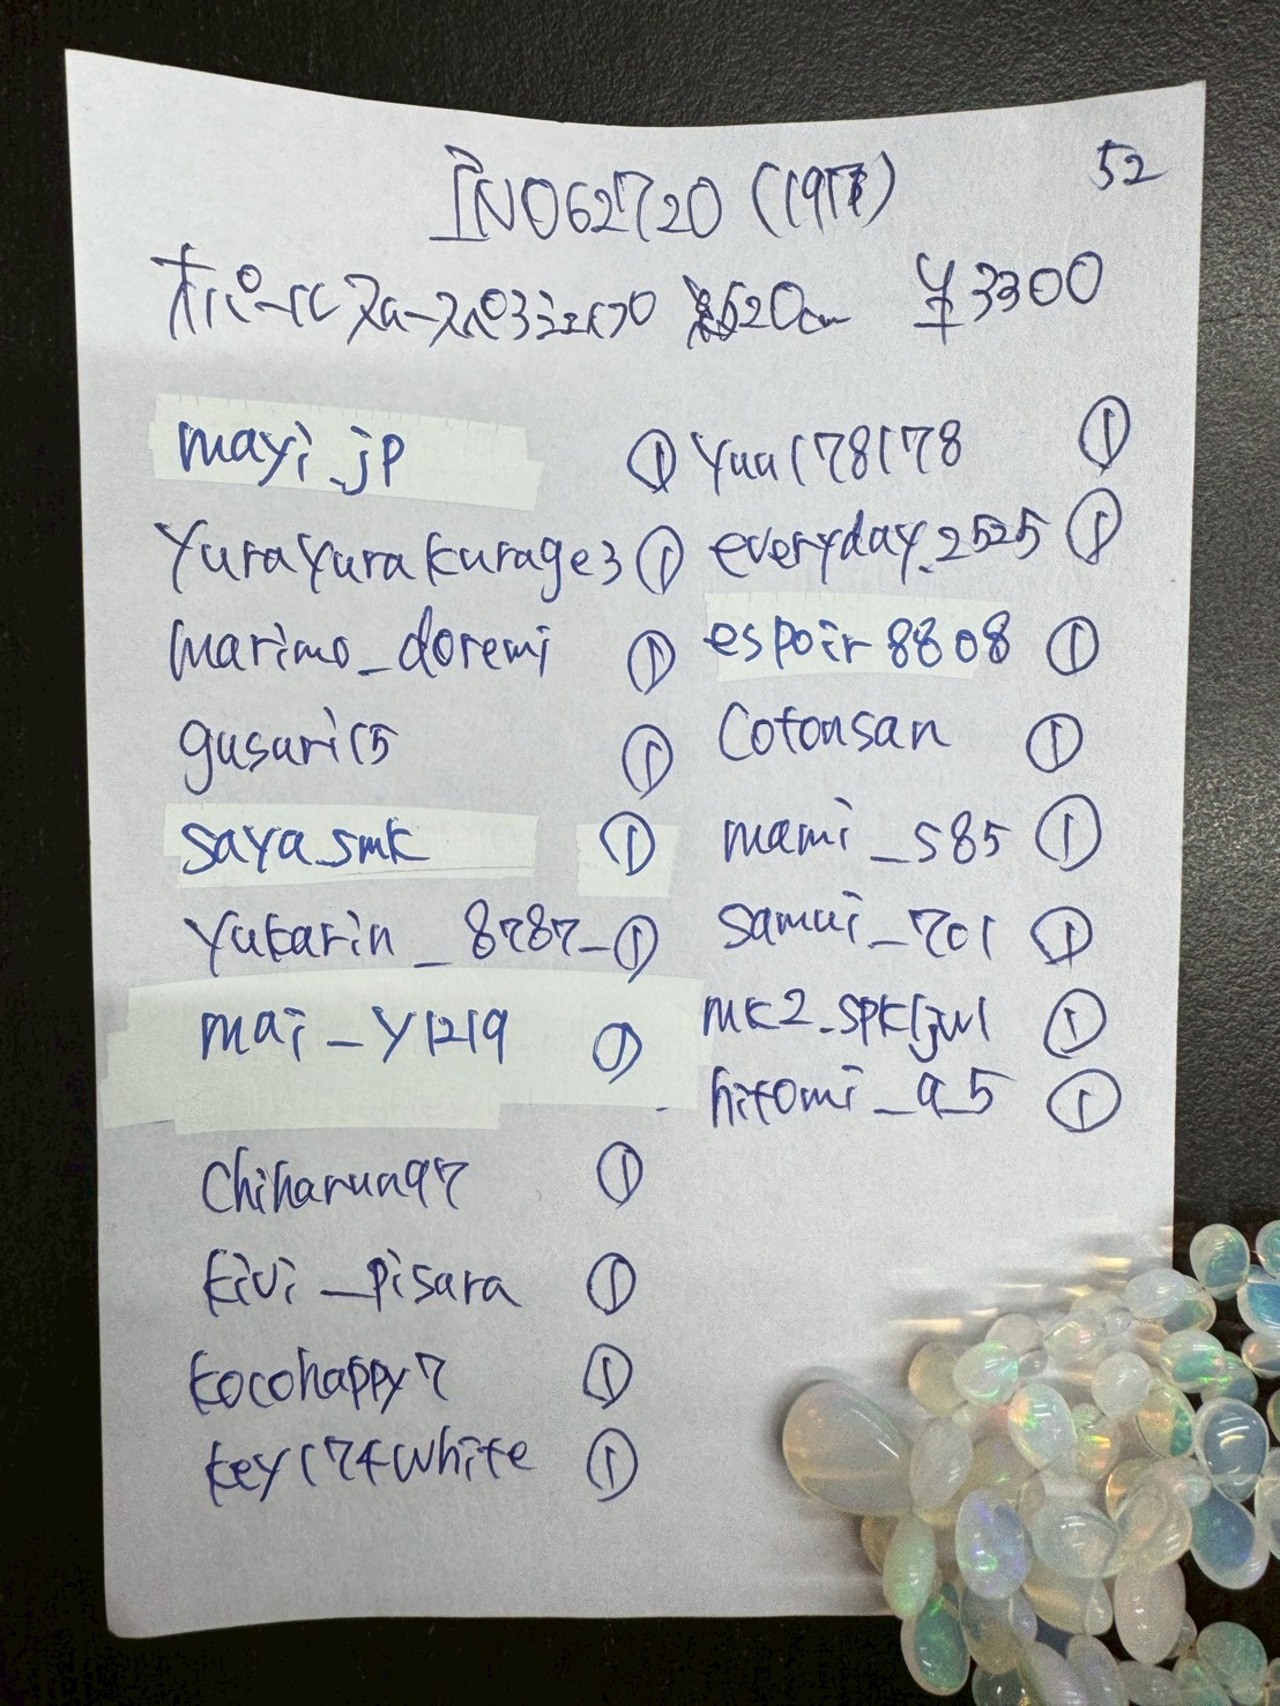 52
INO62720 (197)
オパール ¥3300
mayi_jp ①
YurayuraKurage3 ①
marimo_doremi ①
gusuri15 ①
saya_smk ①
Yukarin_8787_ ①
mai_y1219 ①
Chiharun97 ①
kivi_pisara ①
kocohappy7 ①
key174white ①
Yuu178178 ①
everyday_2525 ①
espoir8808 ①
Cotonsan ①
mami_s85 ①
samui_701 ①
mk2_spk1jw1 ①
hitomi_a_5 ①